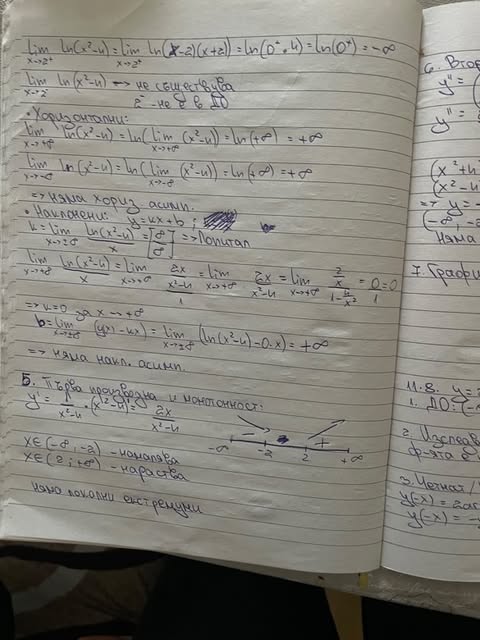 lim x→2⁺ ln(x²-4) = lim x→2⁺ ln(x-2)(x+2) = ln(0⁺.4) = ln(0⁺) = -∞
lim x→2⁻ ln(x²-4) → не съществува
2⁻ - не е в ДО
• Хоризонтални:
lim x→+∞ ln(x²-4) = ln(lim x→+∞ (x²-4)) = ln(+∞) = +∞
lim x→-∞ ln(x²-4) = ln(lim x→-∞ (x²-4)) = ln(+∞) = +∞
=> няма хориз. асимп.
• Наклонени: y=kx+b ;
k = lim x→±∞ ln(x²-4)/x = [∞/∞] => Лопитал
lim x→+∞ ln(x²-4)/x = lim x→+∞ 2x/x²-4 / 1 = lim x→+∞ 2x/x²-4 = lim x→+∞ 2/x / 1-4/x² = 0/1 = 0
=> k=0 за x→+∞
b = lim x→±∞ (y(x)-kx) = lim x→±∞ (ln(x²-4)-0.x) = +∞
=> няма накл. асимп.
5. Първа производна и монотонност:
y' = 1/x²-4 . (x²-4)' = 2x/x²-4
- +
-∞ -2 2 +∞
x∈(-∞,-2) - намалява
x∈(2;+∞) - нараства
няма локални екстремуми
6. Втор
y'' =
y'' =
(x²+4
(x²-4
=> y=-
(-∞,-2
Няма
7. Графи
11.8. y=
1. ДО: (-
2. Изслед
ф-ята е
3. Четнат/
y(-x) = 2ar
y(-x) = -